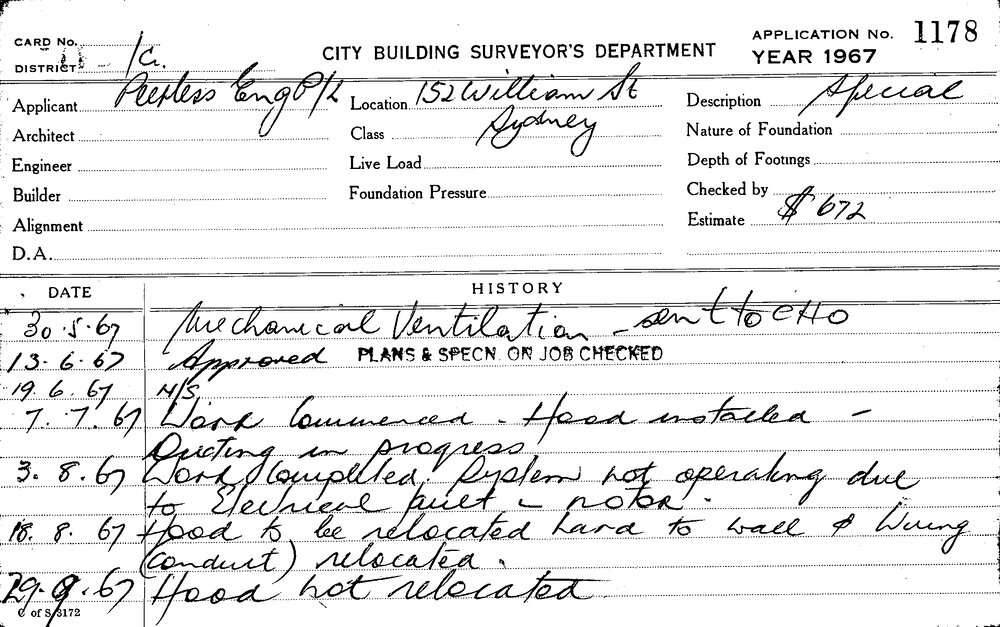 CARD No. /G.
DISTRICT
CITY BUILDING SURVEYOR'S DEPARTMENT
APPLICATION No. 1178
YEAR 1967
Applicant Peerless Eng P/L
Location 152 William St
Sydney
Description Special
Architect
Class
Nature of Foundation
Engineer
Live Load
Depth of Footings
Builder
Foundation Pressure
Checked by
Alignment
Estimate $ 672
D.A.
DATE
HISTORY
30.5.67 Mechanical Ventilation - sent to CHO
13.6.67 Approved PLANS & SPECN. ON JOB CHECKED
19.6.67 N/S
7.7.67 Work Commenced - Hood installed -
Ducting in progress
3.8.67 Work Completed. System not operating due
to Electrical fault motor.
18.8.67 Hood to be relocated hard to wall & Wiring
(conduit) relocated.
29.9.67 Hood not relocated.
C of S 3172